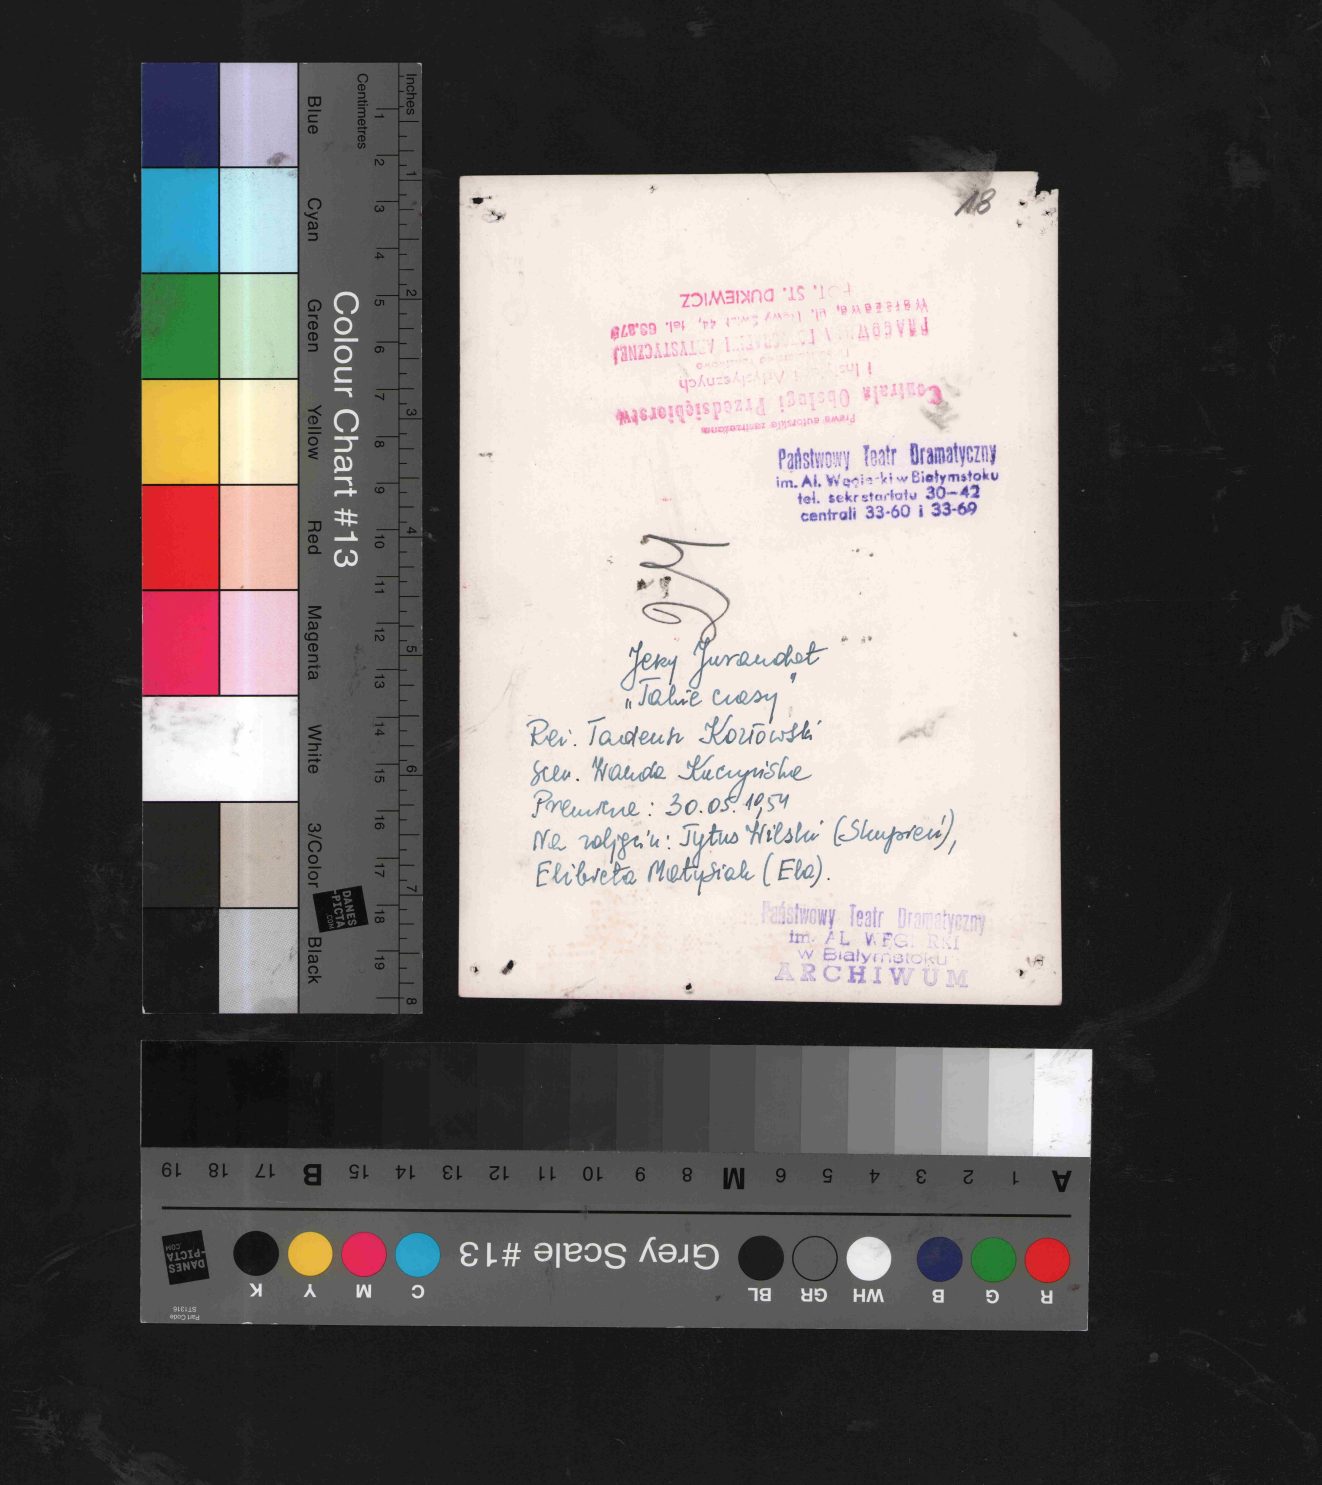 18
Prawa autorskie zastrzeżone
Centrala Obsługi Przedsiębiorstw
i Instytucji Artystycznych
PRACOWNIA FOTOGRAFII ARTYSTYCZNEJ
Warszawa, ul. Nowy Świat 44, tel. 63.878
FOT. ST. DUKIEWICZ
Państwowy Teatr Dramatyczny
im. Al. Węgierki w Białymstoku
tel. sekretariatu 30-42
centrali 33-60 i 33-69
Jerzy Jurandot
"Takie czasy"
Reż. Tadeusz Kozłowski
Scen. Wanda
Premiera: 30.05.1954
Na zdjęciu: Tytus Wilski (Skupień),
Elżbieta Matysiak (Ela).
Państwowy Teatr Dramatyczny
im. AL. WĘGIERKI
w Białymstoku
ARCHIWUM
Colour Chart #13
Inches
Centimetres
1 2 3 4 5 6 7 8 9 10 11 12 13 14 15 16 17 18 19
1 2 3 4 5 6 7 8
Blue
Cyan
Green
Yellow
Red
Magenta
White
3/Color
Black
DANES
-PICTA
.COM
A 1 2 3 4 5 6 M 8 9 10 11 12 13 14 15 B 17 18 19
R G B WH GR BL
Grey Scale #13
C M Y K
DANES
-PICTA
.COM
Part Code
ST1316